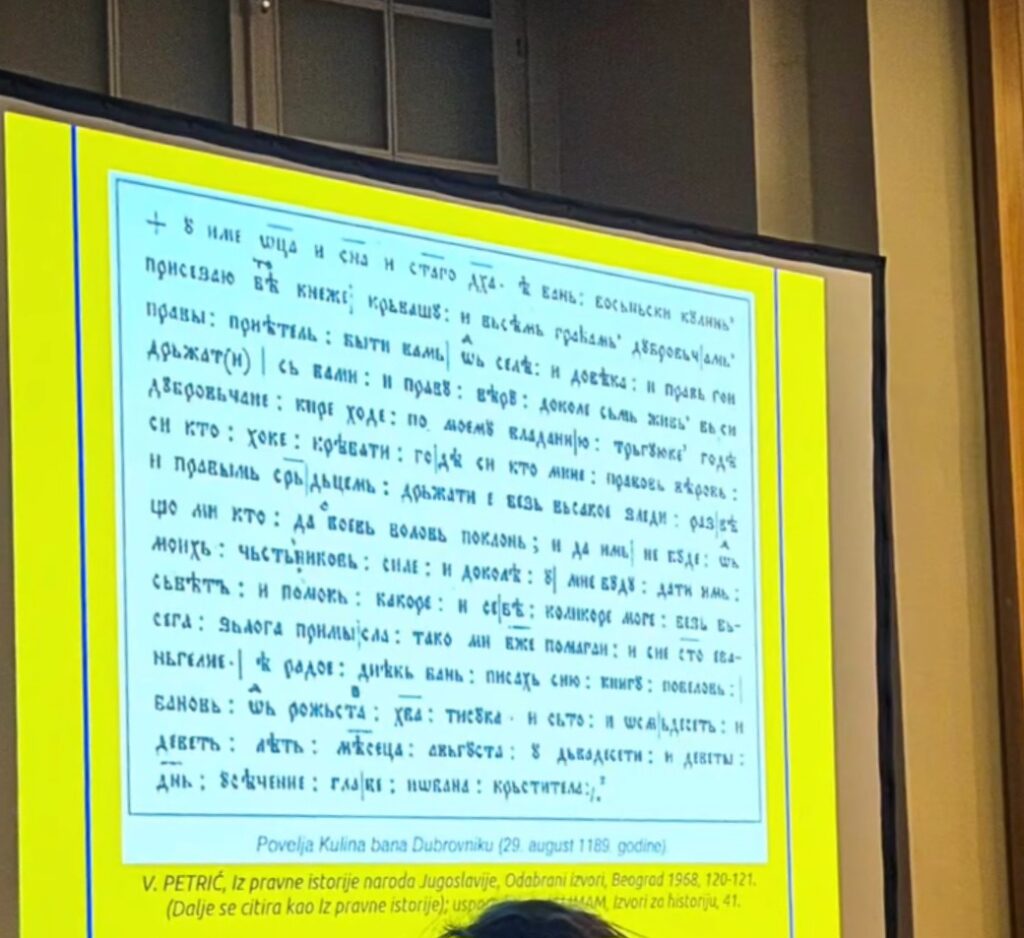 + ꙋ име ѡ҃ца и с҃на и с҃таго д҃ха· ѣ бань: босьньски кꙋлинь'
присезаю тебѣ кнеже: крьвашꙋ: и вьсѣмь граћамь' дꙋбровьч|амь'
правы: приѣтель: быти вамь| ѡ҃ь селѣ: и довѣка: и правь гои
дрьжат(и) | сь вами: и правꙋ: вѣрꙋ: доколе сьмь живь' вьси
дꙋбровьчане: кире ходе: по моемꙋ владани|ю: трьгꙋюке' годѣ
си кто: хоке: крѣвати: го|дѣ си кто мине: правовь вѣровь:
и правымь срь|дьцемь: дрьжати е безь вьсакое зледи: раз|вѣ
що ми кто: да своевь воловь поклонь; и да имь| не бꙋде: ѡ҃ь
моихь: чьстьниковь: силе: и доколѣ: ꙋ| мне бꙋдꙋ: дати имь:
сьвѣтъ: и помокь: какоре: и се|бѣ: коликоре море: безь вь-
сега: зьлога примы|сла: тако ми б҃же помагаи: и сие с҃то ева-
ньгелие·| ѣ радое: диѣкь бань: писахь сию: книгꙋ: повеловь:|
бановь: ѡ҃ь рожьства: х҃ва: тисꙋка· и сьто: и ѡсм|ьдесеть: и
деветь: лѣть: мѣсеца: авьгꙋста: ꙋ дьвадесети: и деветы:
д҃нь: ꙋсѣчение: гла|ве: иѡвана: крьститела:/.
Povelja Kulina bana Dubrovniku (29. august 1189. godine)
V. PETRIĆ, Iz pravne istorije naroda Jugoslavije, Odabrani izvori, Beograd 1968, 120-121.
(Dalje se citira kao Iz pravne istorije); Izvori za historiju, 41.